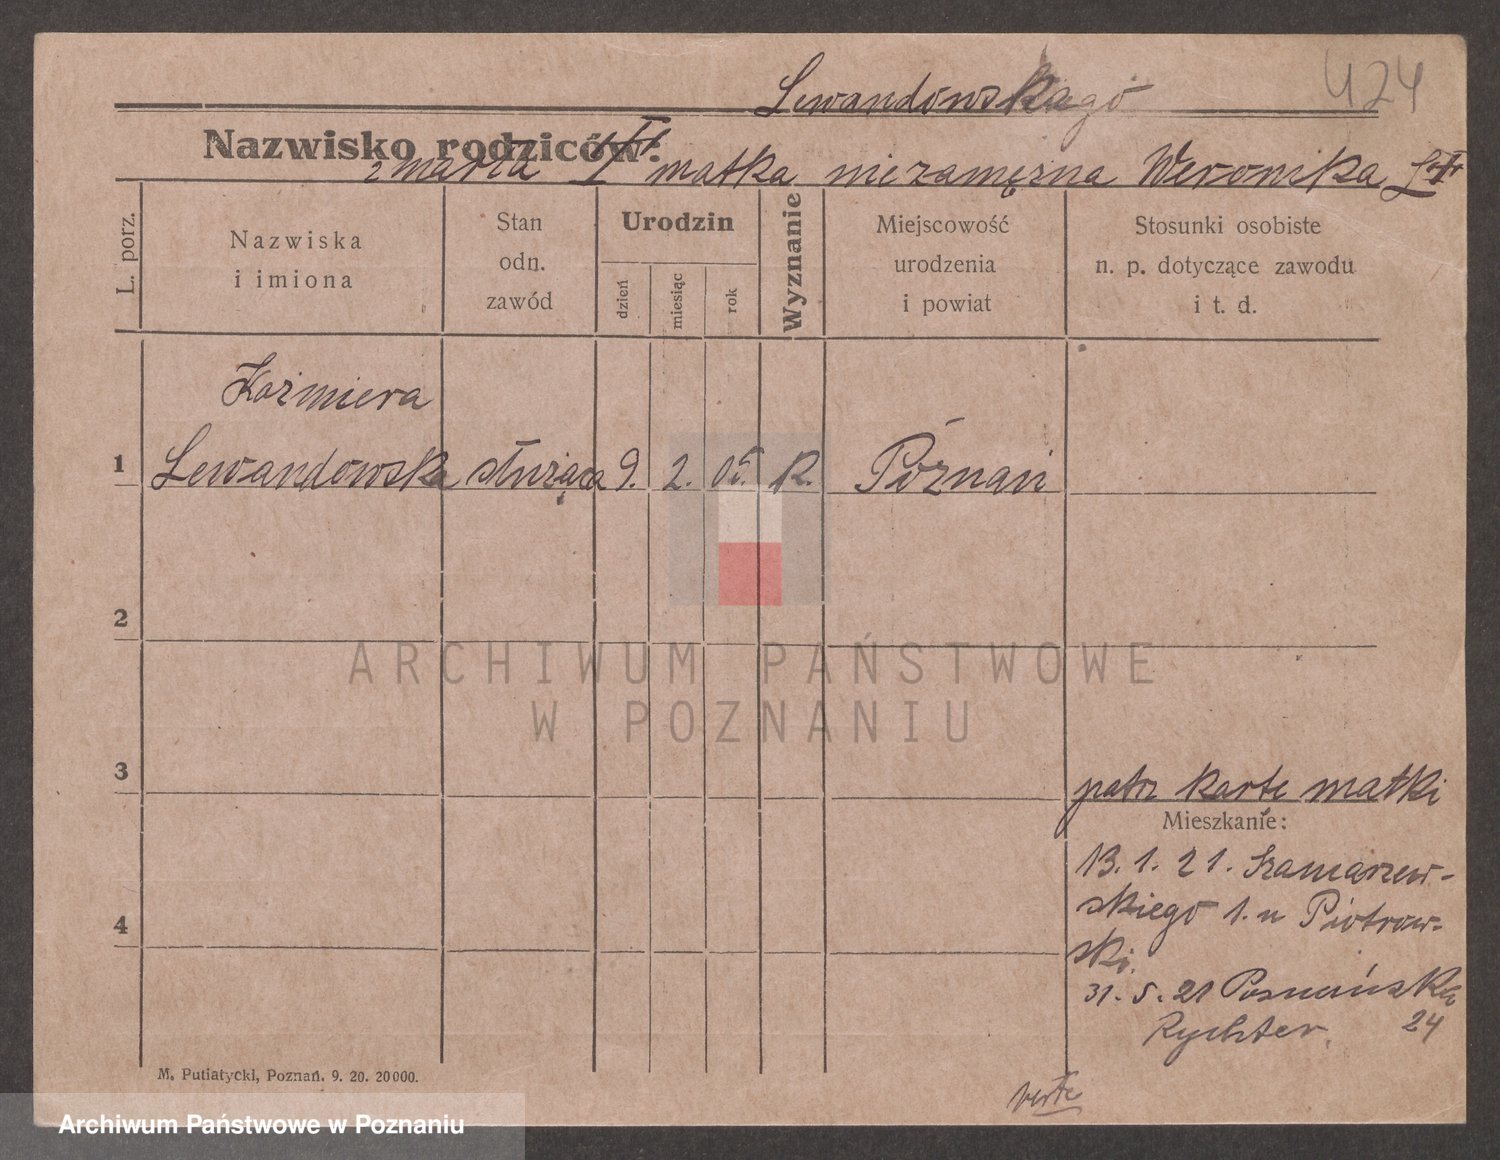 424
Lewandowskago
Nazwisko rodziców:
zmarła matka niezamężna Weronika L.
L. porz.
Nazwiska
i imiona
Stan
odn.
zawód
Urodzin
dzień
miesiąc
rok
Wyznanie
Miejscowość
urodzenia
i powiat
Stosunki osobiste
n. p. dotyczące zawodu
i t. d.
Kaźmiera
1 Lewandowska służąca 9. 2. 05. R. Poznań
2
3
patrz karte matki
Mieszkanie:
13. 1. 21. Szamarzew-
skiego 1. u Piotrow-
ski.
4
31. 5. 21 Poznańska
Rychter. 24
M. Putiatycki, Poznań. 9. 20. 20000.
verte
ARCHIWUM PAŃSTWOWE
W POZNANIU
Archiwum Państwowe w Poznaniu